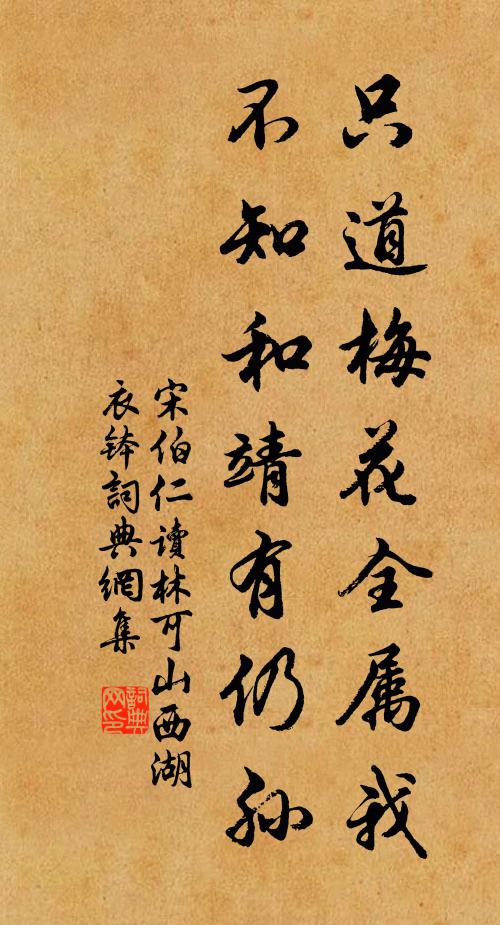 只道梅花全属我
不知和靖有仍孙
宋伯仁读林可山西湖
衣钵詞典網集
詞典网印